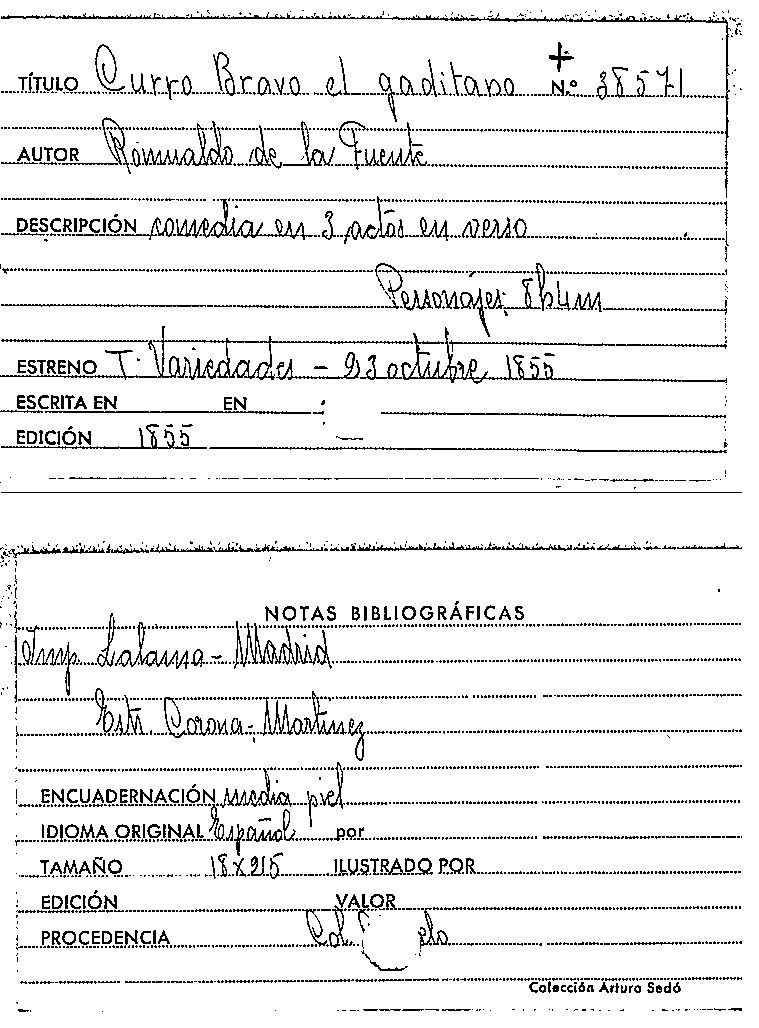 TÍTULO Curro Bravo el gaditano N.º 38571
AUTOR Romualdo de la Fuente
DESCRIPCIÓN comedia en 3 actos en verso
Personajes, 8h4m
ESTRENO T. Variedades - 23 octubre 1855
ESCRITA EN EN :
EDICIÓN 1855 —
NOTAS BIBLIOGRÁFICAS
Imp. Lalama - Madrid
Estr. Corona - Martinez
ENCUADERNACIÓN media piel
IDIOMA ORIGINAL Español por
TAMAÑO 18x215 ILUSTRADO POR
EDICIÓN VALOR
PROCEDENCIA Col.
Colección Arturo Sedó